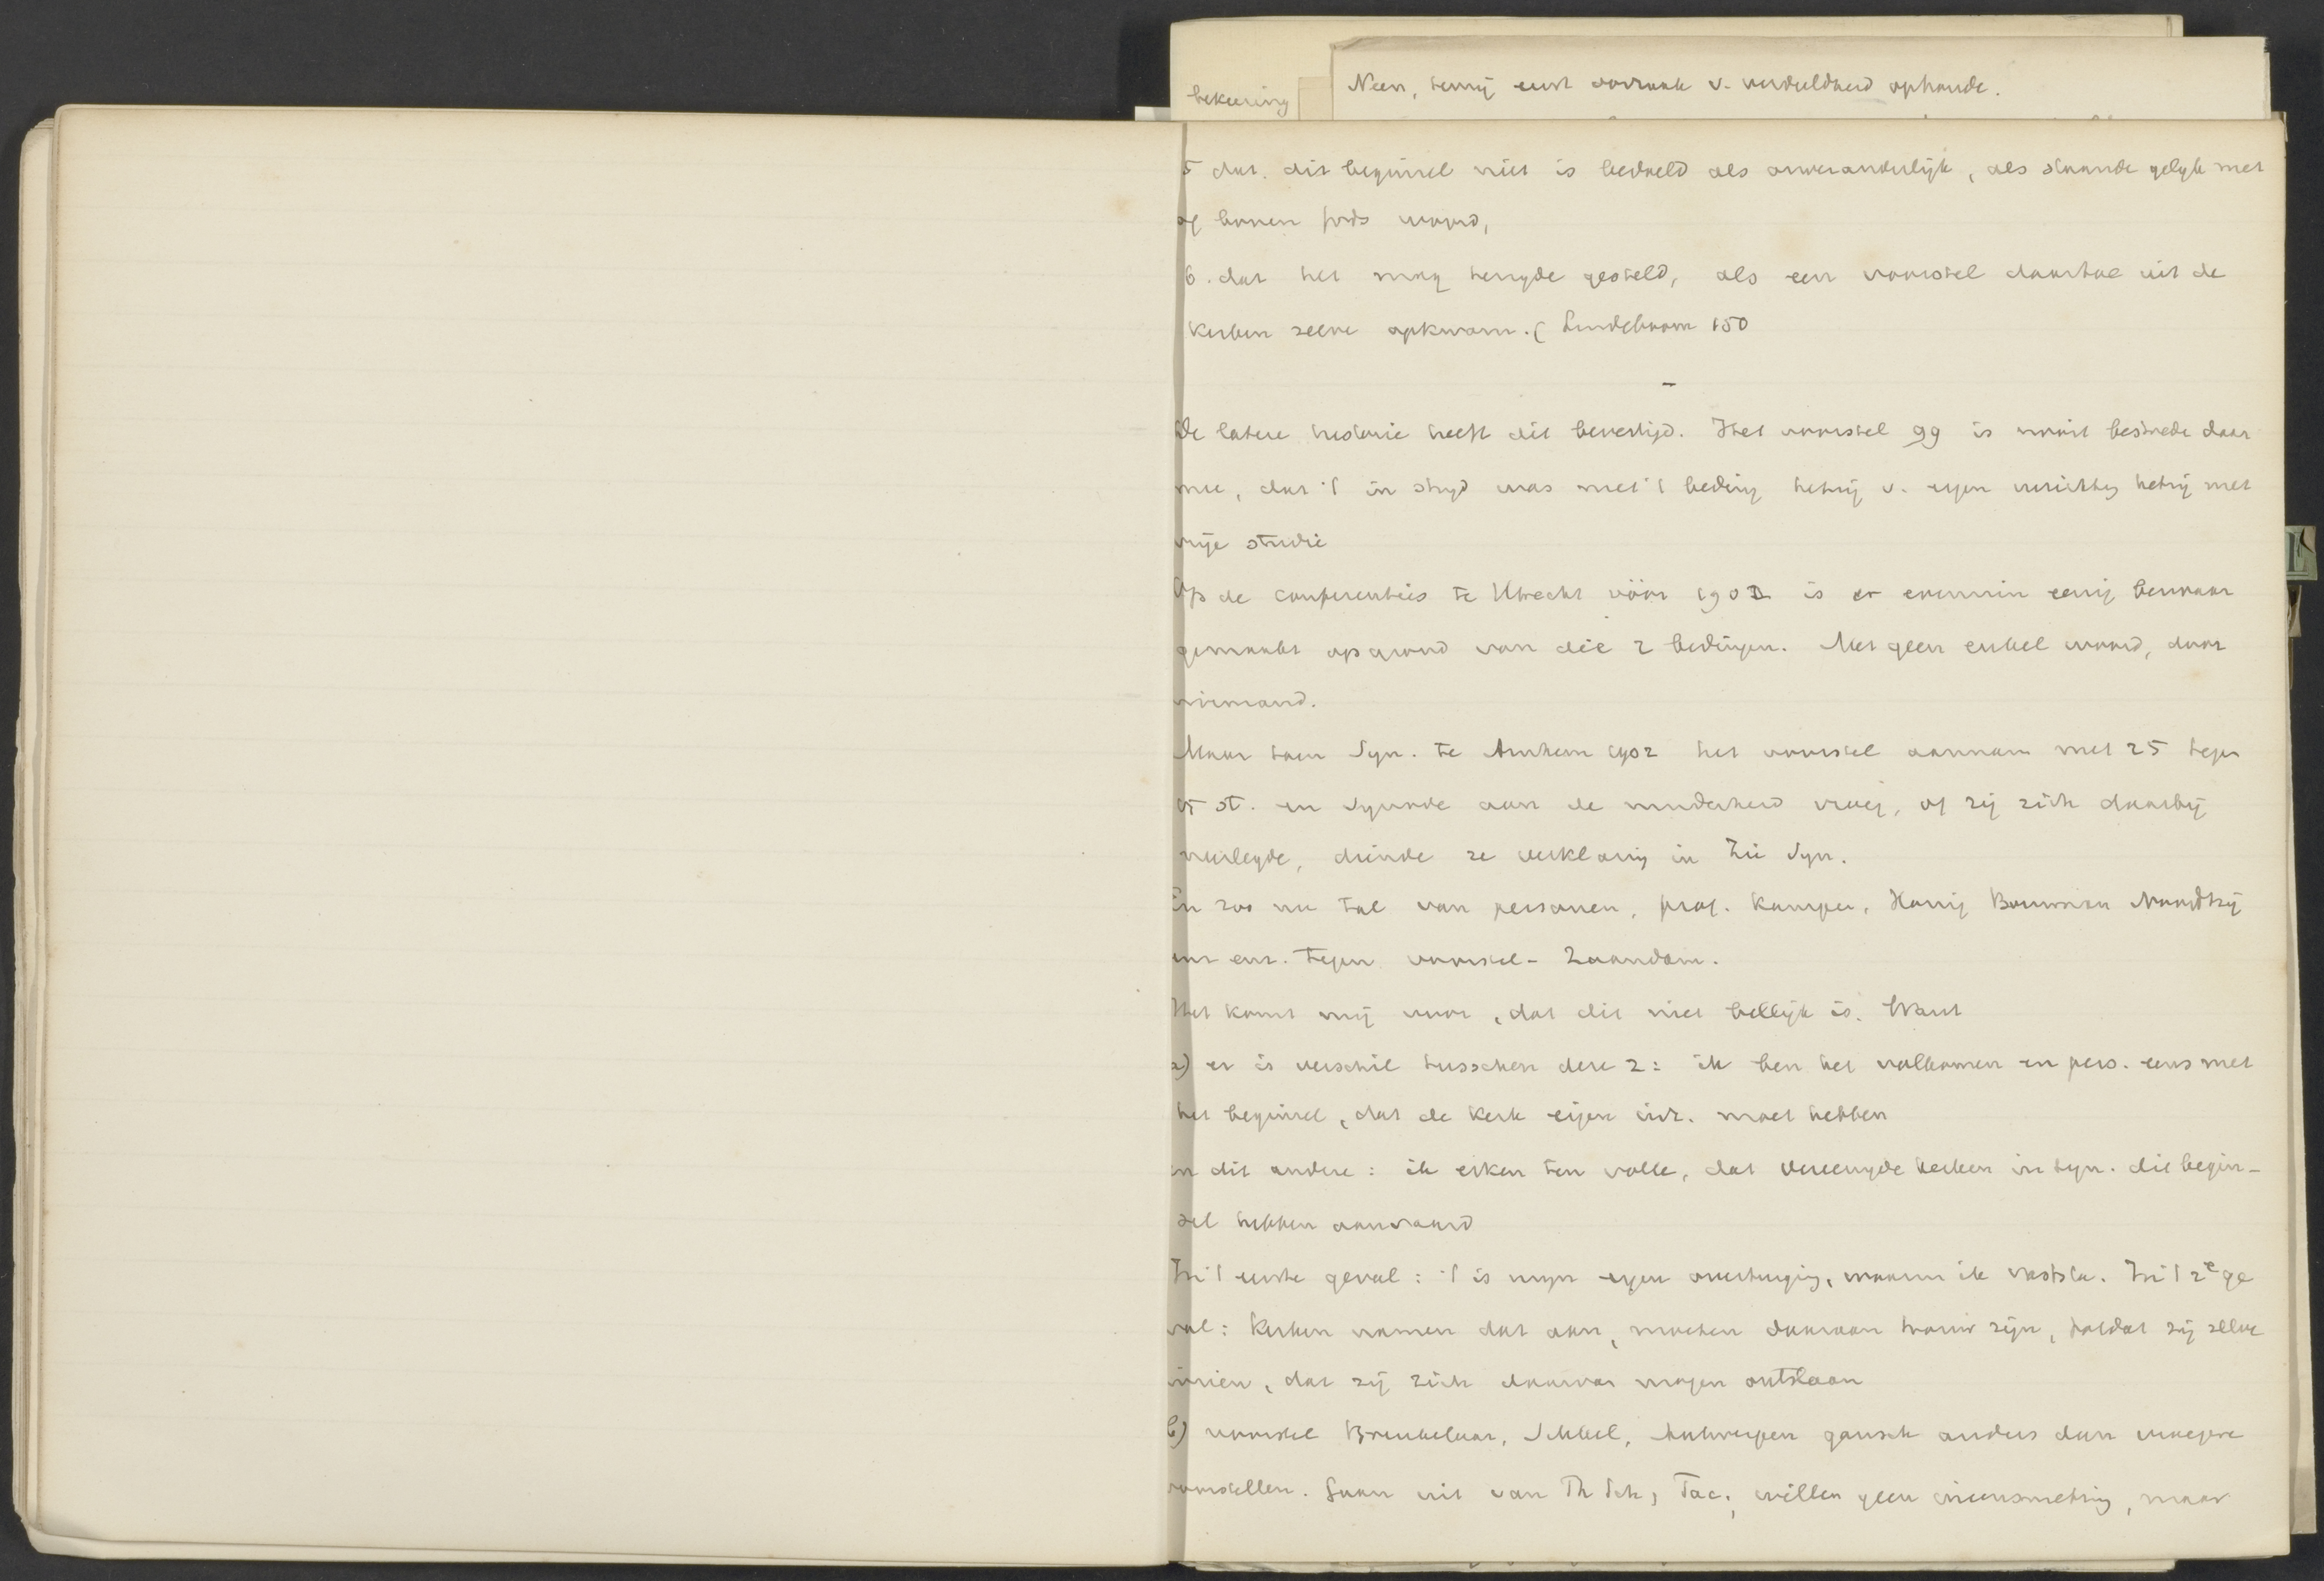 bekeering
Neen, tenzij eerst oorzaak v. verdeeldheid ophoude.
5 dat. dit beginsel niet is bedoeld als onveranderlijk, als staande gelijk met
of boven Gods woord,
6. dat het mag terzyde gesteld, als een voorstel daartoe uit de
Kerken zelve opkwam. (Lindeboom 150
-
De latere historie heeft dit bevestigd. Het voorstel 99 is nooit bestrede daar
mee, dat 't in stryd was met 't beding hetzij v. eigen inrichting hetzij met
vrije studie
Op de conferenties te Utrecht vóór 1902 is er evenmin eenig bezwaar
gemaakt op grond van die 2 bedingen. Met geen enkel woord, door
niemand.
Maar toen Syn. te Arnhem 1902 het voorstel aannam met 25 tegen
15 st. en Synode aan de minderheid vroeg, of zij zich daarbij
neerlegde, diende ze verklaring in Zie Syn.
En zoo nu tal van personen, prof. Kamper, Honig Bouwman Noordtzij
enz enz. tegen voorstel - Zaandam.
Het komt mij voor, dat dit niet billijk is. Want
a) er is verschil tusschen deze 2: ik ben het volkomen en pers. eens met
het beginsel, dat de Kerk eigen inr. moet hebben
en dit andere: ik erken ten volle, dat vereenigde kerken in syn. dit begin-
sel hebben aanvaard
In 't eerste geval: 't is mijn eigen overtuiging, waarin ik vaststa. In 't 2e ge
val: Kerken namen dat aan, moeten daaraan trouw zijn, totdat zij zelve
inzien, dat zij zich daarvan mogen ontslaan
b) voorstel Breukelaar, Schbil, Antwerpen gansch anders dan vroegere
voorstellen. Gaan uit van Th Sch, Fac., willen geen ineensmelting, maar